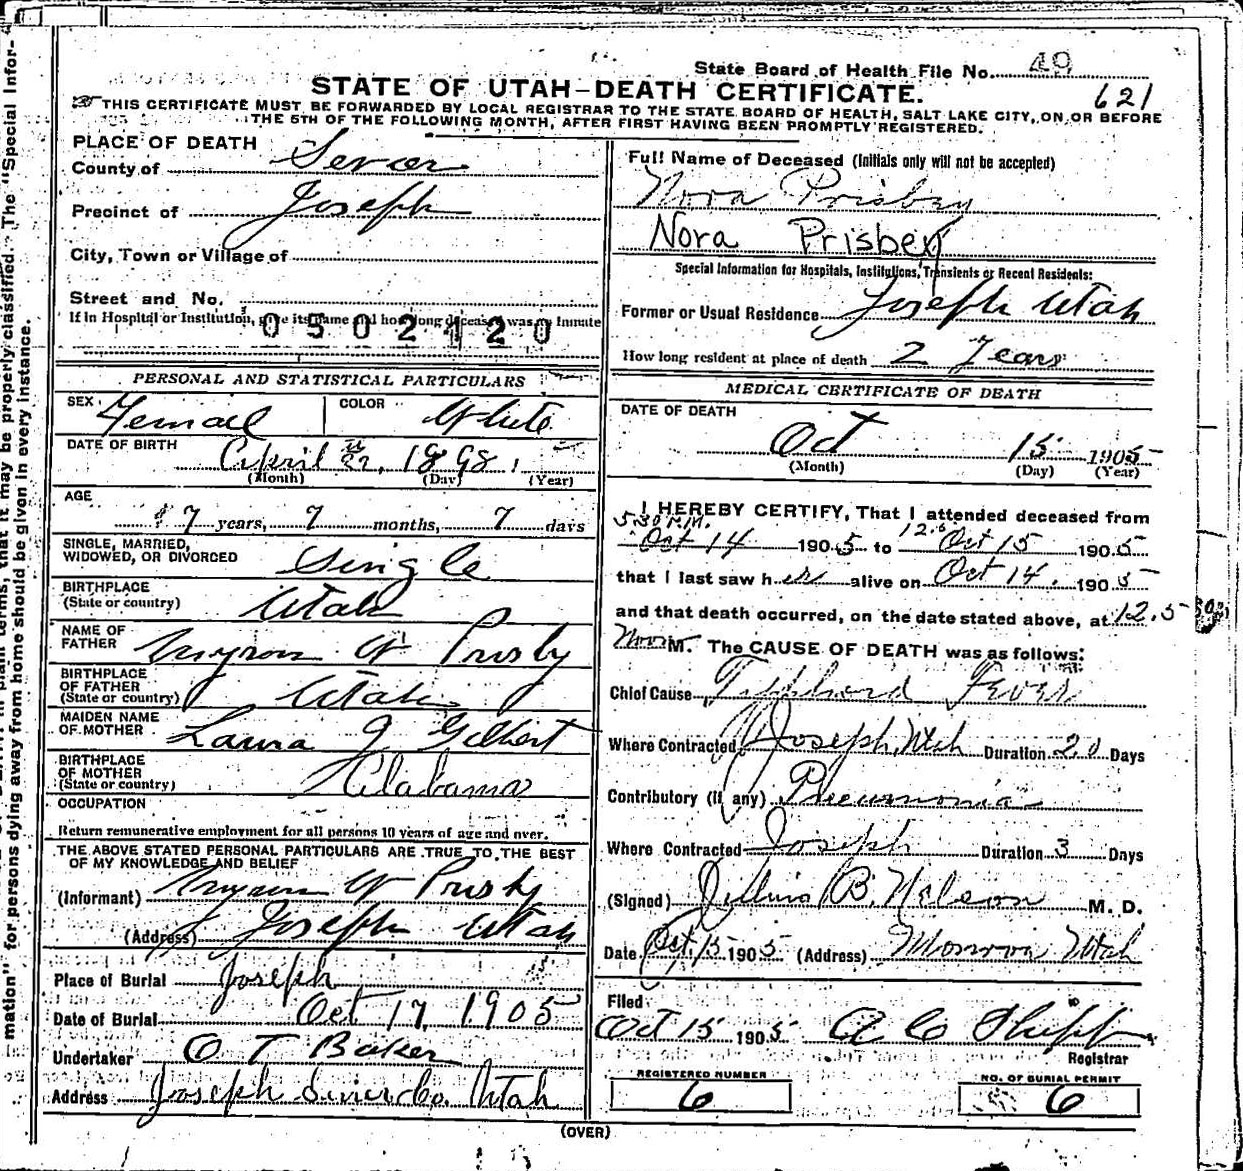 State Board of Health File No. 49
STATE OF UTAH–DEATH CERTIFICATE.
621
THIS CERTIFICATE MUST BE FORWARDED BY LOCAL REGISTRAR TO THE STATE BOARD OF HEALTH, SALT LAKE CITY, ON OR BEFORE
THE 5TH OF THE FOLLOWING MONTH, AFTER FIRST HAVING BEEN PROMPTLY REGISTERED.
PLACE OF DEATH
County of Sevier
Precinct of Joseph
City, Town or Village of
Street and No.
If in Hospital or Institution, give its name and how long deceased was an inmate
0502120
PERSONAL AND STATISTICAL PARTICULARS
SEX Femael COLOR White
DATE OF BIRTH April 22, 1898
(Month) (Day) (Year)
AGE
7 years, 7 months, 7 days
SINGLE, MARRIED,
WIDOWED, OR DIVORCED Single
BIRTHPLACE
(State or country) Utah
NAME OF
FATHER Myron W Prisby
BIRTHPLACE
OF FATHER
(State or country) Utah
MAIDEN NAME
OF MOTHER Laura J Gilbert
BIRTHPLACE
OF MOTHER
(State or country) Alabama
OCCUPATION
Return remunerative employment for all persons 10 years of age and over.
THE ABOVE STATED PERSONAL PARTICULARS ARE TRUE TO THE BEST
OF MY KNOWLEDGE AND BELIEF
(Informant) Myron W Prisby
(Address) Joseph Utah
Place of Burial Joseph
Date of Burial Oct 17, 1905
Undertaker O T Baker
Address Joseph Sevier Co. Utah
Full Name of Deceased (Initials only will not be accepted)
Nora Prisbey
Nora Prisbey
Special Information for Hospitals, Institutions, Transients or Recent Residents:
Former or Usual Residence Joseph Utah
How long resident at place of death 2 Years
MEDICAL CERTIFICATE OF DEATH
DATE OF DEATH
Oct 15 1905
(Month) (Day) (Year)
I HEREBY CERTIFY, That I attended deceased from
5.30 P.M. Oct 14 1905 to Oct 15 1905
that I last saw her alive on Oct 14, 1905
and that death occurred, on the date stated above, at 12.5
Noon M. The CAUSE OF DEATH was as follows:
Chief Cause Typhoid Fever
Where Contracted Joseph, Utah Duration 20 Days
Contributory (If any) Pneumonia
Where Contracted Joseph Duration 3 Days
(Signed) Julius B. Nelson M. D.
Date Oct 15 1905 (Address) Monroe Utah
Filed
Oct 15 1905 A C Shipp
Registrar
REGISTERED NUMBER
6
NO. OF BURIAL PERMIT
6
(OVER)
mation" for persons dying away from home should be given in every instance.
in plain terms, that it may be properly classified. The "Special Infor-